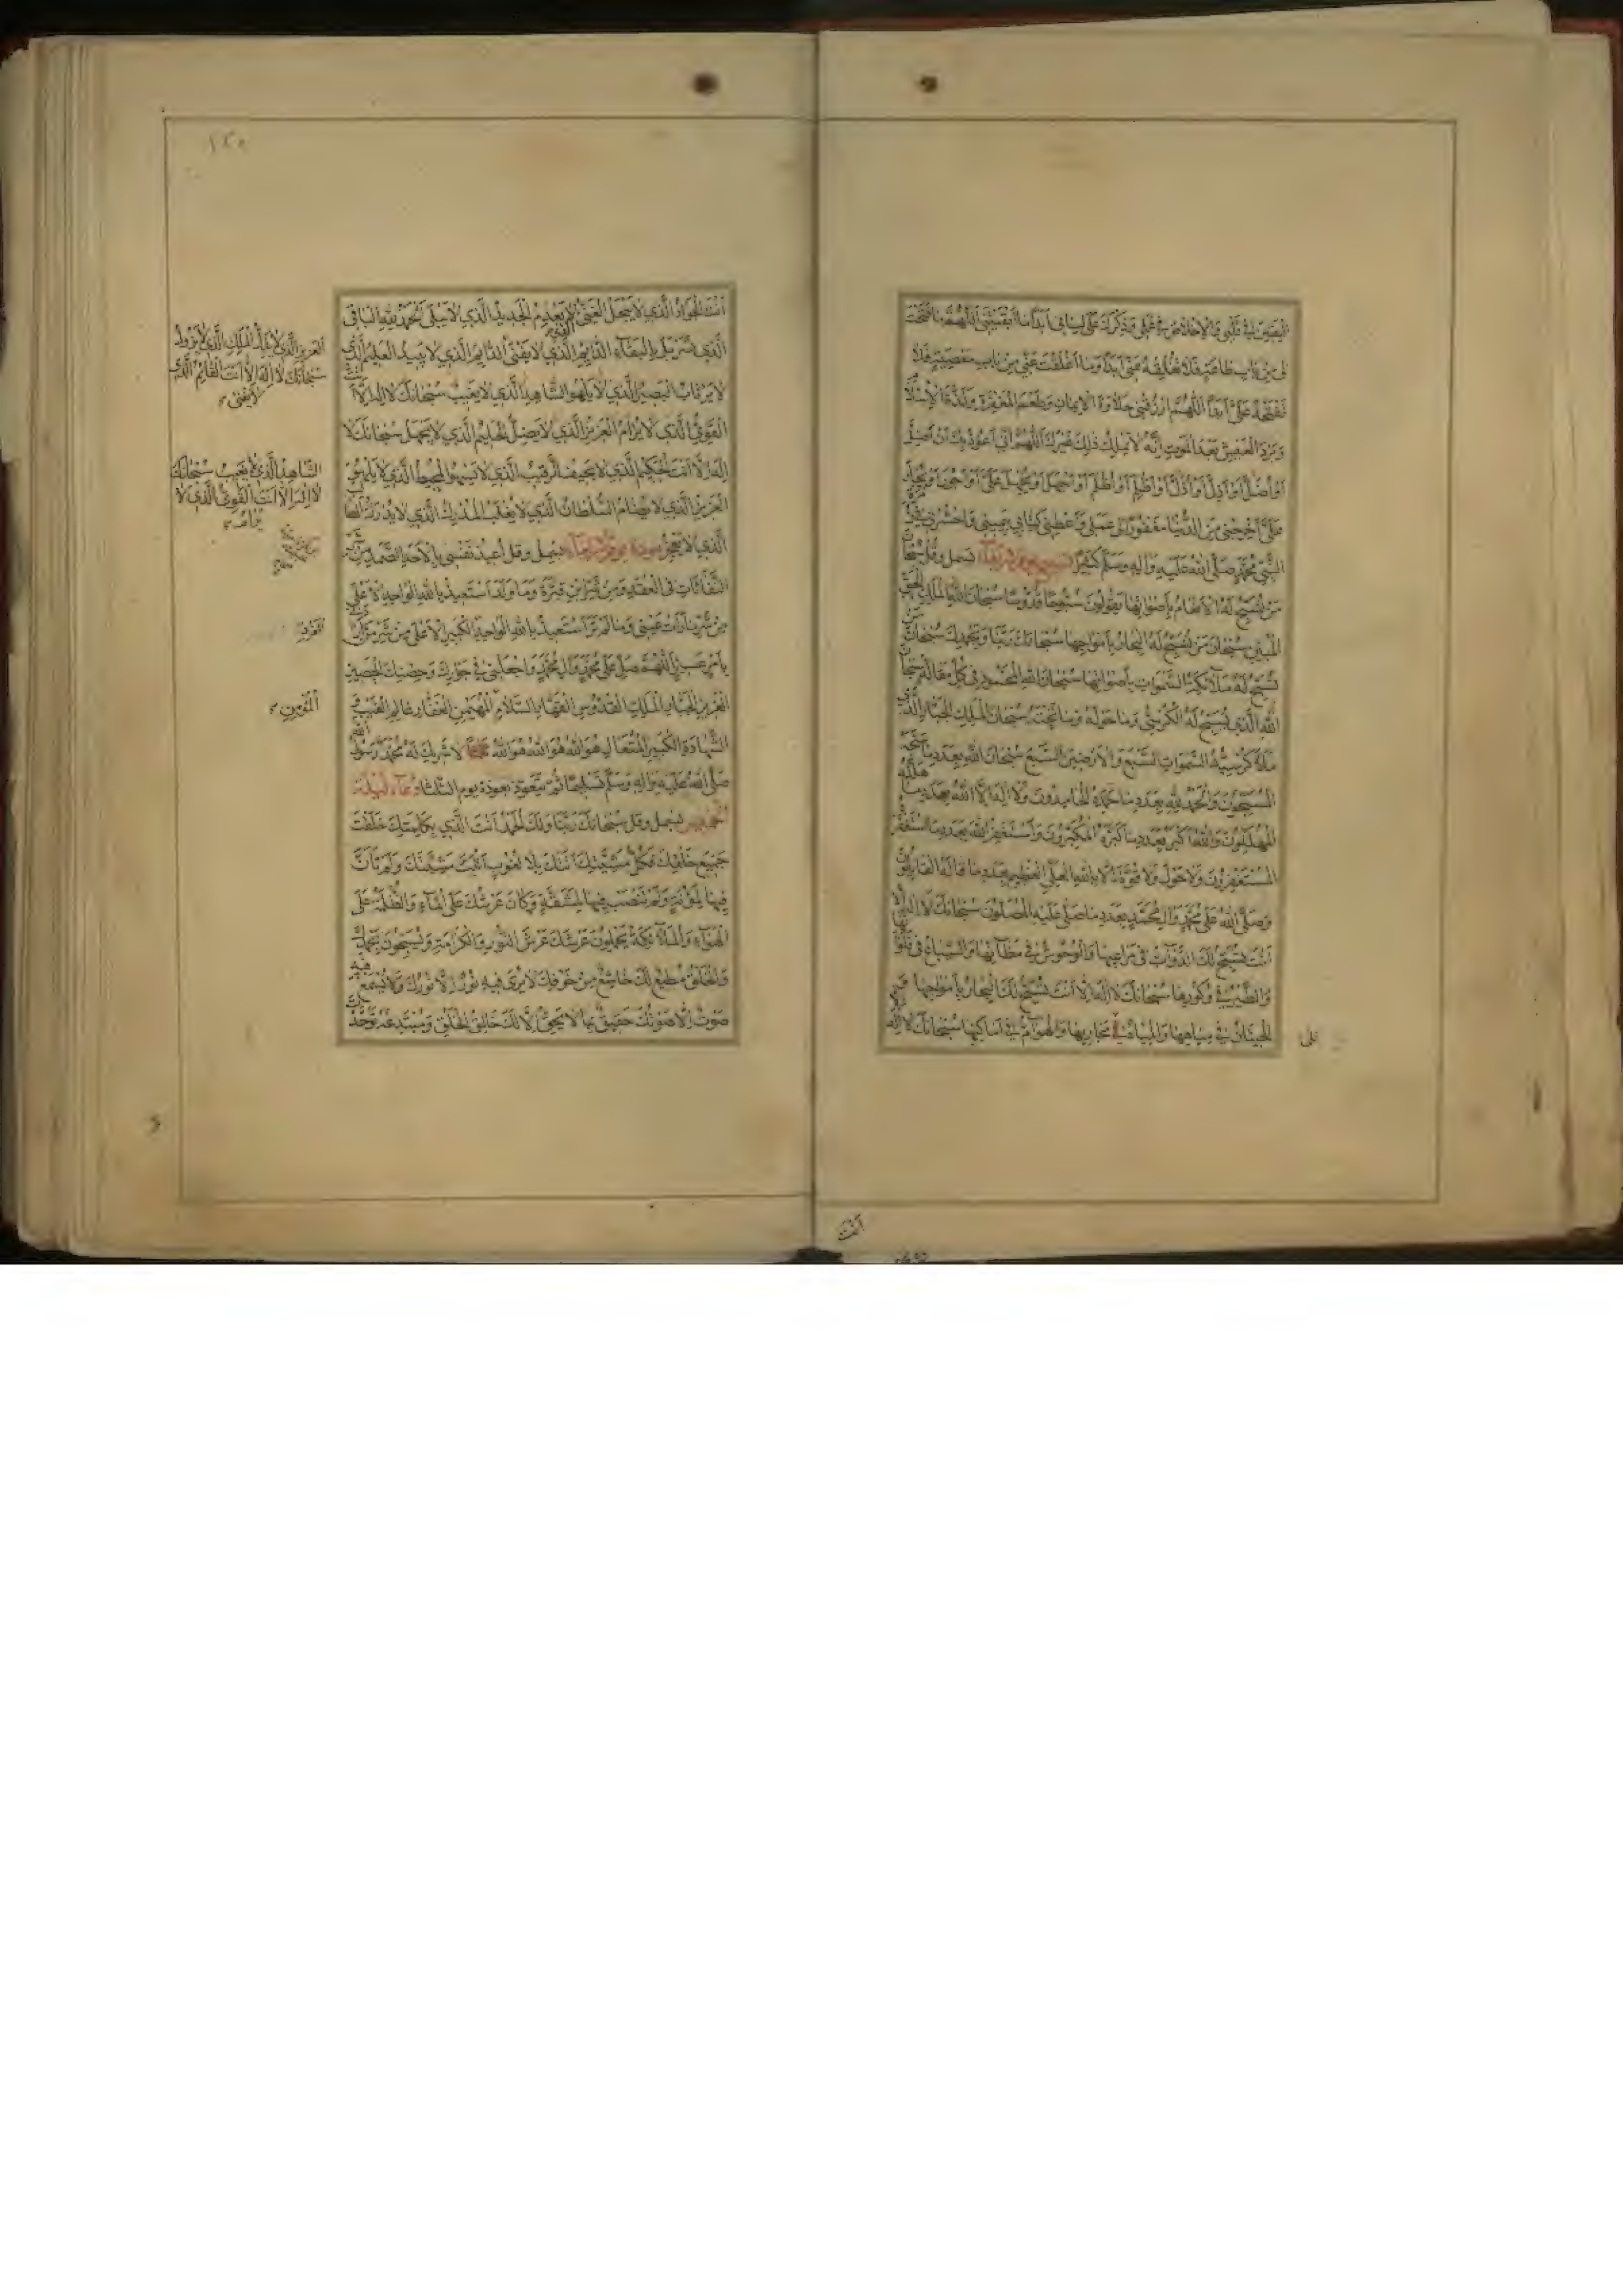 اليقين في قلبي والاخلاص في عملي وذكرك على لساني ابدا ما ابقيتني اللهم ما فتحت
لي من باب طاعة فلا تغلقه عني ابدا وما اغلقت عني من باب معصية فلا
تفتحه علي ابدا اللهم ارزقني حلاوة الايمان وطعم المغفرة ولذة الاسلام
وبرد العيش بعد الموت انه لا يملك ذلك غيرك اللهم اني اعوذ بك ان اضل
او اضل او اذل او اذل او اظلم او اظلم او اجهل او يجهل علي او اجور او يجار
علي اخرجني من الدنيا مغفورا لي عملي واعطني كتابي بيميني واحشرني في زمرة
النبي محمد صلى الله عليه واله وسلم كثيرا تسبيح يوم تبسمل وقل سبحان
من تسبح له الانعام باصواتها يقولون سبوحا قدوسا سبحان الله الملك الحق
المبين سبحان من تسبح له البحار بامواجها سبحانك ربنا وبحمدك سبحان من
تسبح له ملائكة السموات باصواتها سبحان الله المحمود في كل مقالة سبحان
الله الذي يسبح له الكرسي وما حوله وما تحته سبحان الملك الجبار الذي
ملأ كرسيه السموات السبع والارضين السبع سبحان الله بعدد ما سبحه
المسبحون والحمد لله بعدد ما حمده الحامدون ولا اله الا الله بعدد ما هلله
المهللون والله اكبر بعدد ما كبره المكبرون واستغفر الله بعدد ما استغفره
المستغفرون ولا حول ولا قوة الا بالله العلي العظيم بعدد ما قاله القايلون
وصلى الله على محمد وال محمد بعدد ما صلى عليه المصلون سبحانك لا اله الا
انت تسبح لك الدواب في مراعيها والوحوش في مظانها والسباع في فلواتها
والطير في وكورها سبحانك لا اله الا انت تسبح لك البحار بامواجها و
الحيتان في مياهها والمياه في مجاريها والهوام في اماكنها سبحانك لا اله
انت
انت الجواد الذي لا يبخل الغني الذي لا يعدم الجديد الذي لا يبلى الحمد لله الباقي
الذي تسربل بالبقاء الدايم الذي لا يفنى الدايم الذي لا يبيد العليم الذي
لا يرتاب البصير الذي لا يلهو الشاهد الذي لا يغيب سبحانك لا اله الا انت
القوي الذي لا يرام العزيز الذي لا يضل الحليم الذي لا يجهل سبحانك لا
اله الا انت الحكيم الذي لا يحيف الرقيب الذي لا يسهو المحيط الذي لا يلهو
العزيز الذي لا يضام السلطان الذي لا يغلب المدرك الذي لا يدرك الطالب
الذي لا يعجز عوذة يوم تبسمل وقل اعيذ نفسي بالاحد الصمد من شر
النفاثات في العقد ومن شر ابن قترة وما ولد استعيذ بالله الواحد الاعلى
من شر ما رات عيني وما لم تر استعيذ بالله الواحد الكبير الاعلى من شر من ارادني
بامر عسير اللهم صل على محمد وال محمد واجعلني في جوارك وحصنك الحصين
العزيز الجبار الملك القدوس القهار السلام المهيمن الغفار عالم الغيب و
الشهادة الكبير المتعال هو الله هو الله هو الله لا شريك له محمد رسول الله
صلى الله عليه واله وسلم تسليما ثم تتعوذ بعوذة يوم الثلثا دعاء ليلة
الخميس تبسمل وقل سبحانك ربنا ولك الحمد انت الذي بكلمتك خلقت
جميع خلقك فكل مشيتك اتتك بلا لغوب اثبت مشيتك ولم تان
فيها لمؤنة ولم تنصب فيها لمشقة وكان عرشك على الماء والظلمة على
الهواء والملائكة يحملون عرشك عرش النور والكرامة ويسبحون بحمدك
والخلق مطيع لك خاشع من خوفك لا يرى فيه نور الا نورك ولا يسمع فيه
صوت الا صوتك حقيق بما لا يحق الا لك خالق الخلق ومبتدعه توحدت
العزيز الذي لا يذل الملك الذي لا يزول
سبحانك لا اله الا انت القايم الذي
لا يفنى
الشاهد الذي لا يغيب سبحانك
لا اله الا انت القوي الذي لا
يرام
الفرد